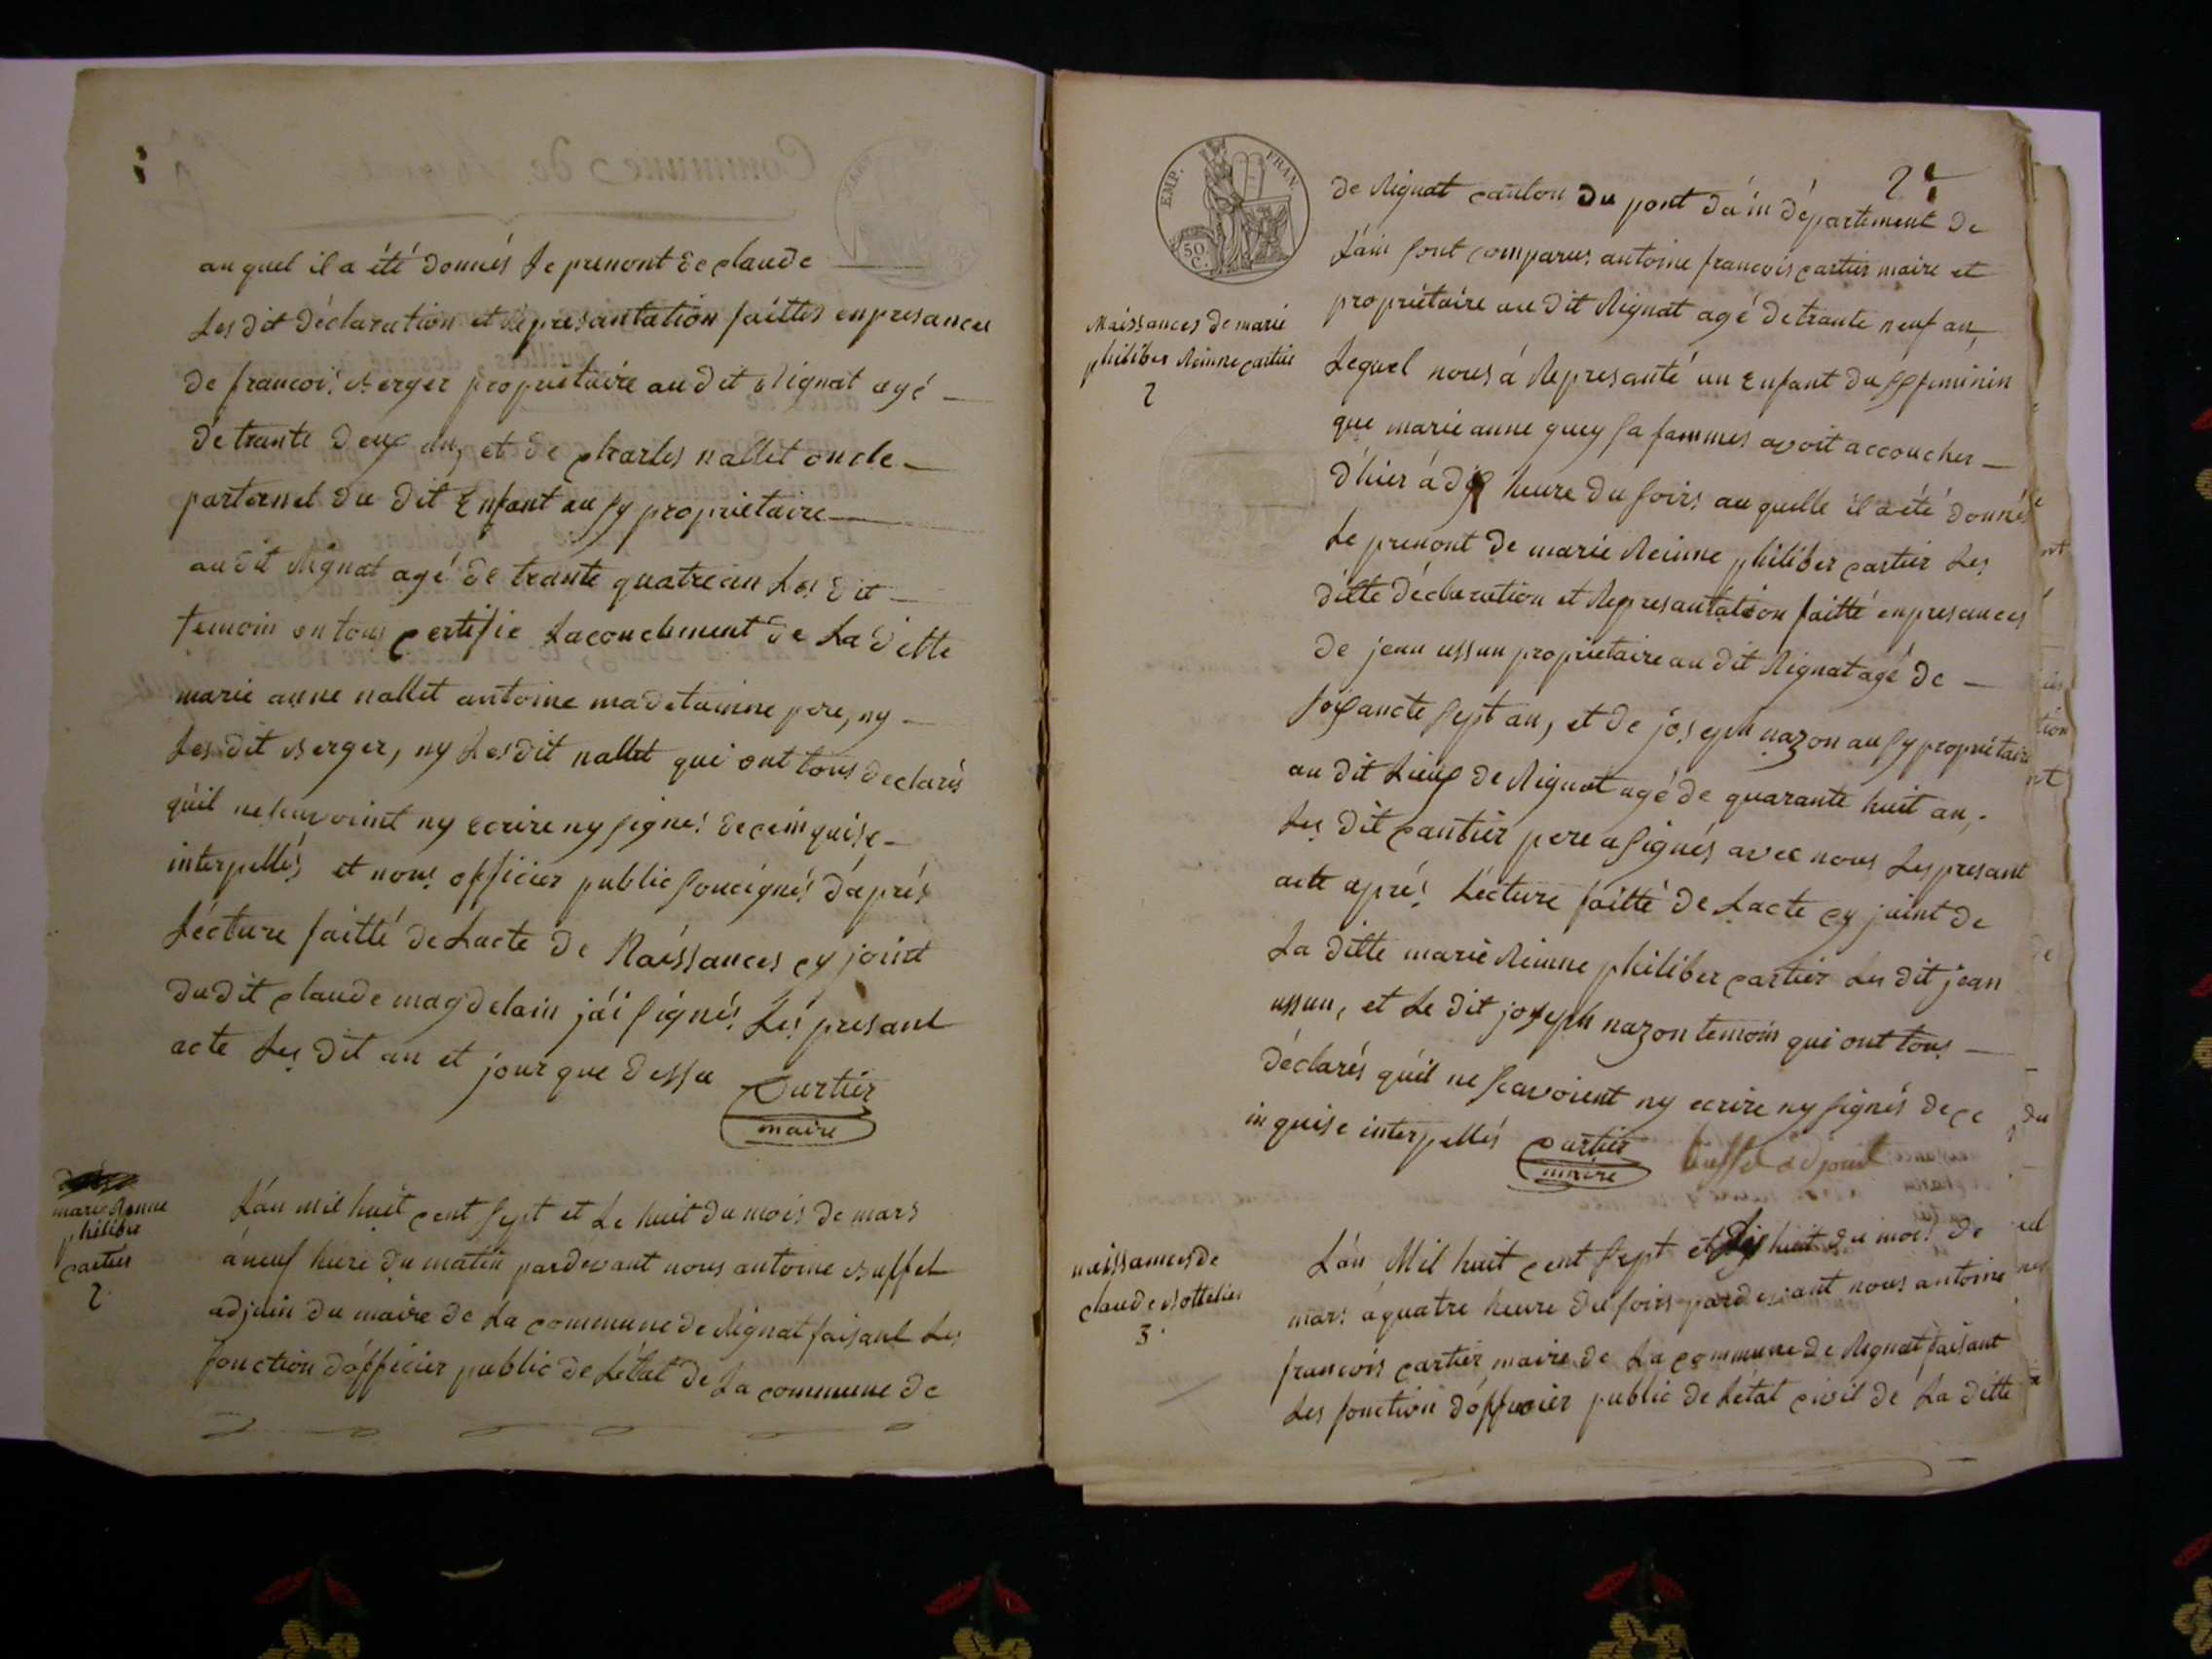 auquel il a été donnés Le prenont de claude
Lesdit déclaration et représantation faittes enpresances
de francois Berger propriétaire audit Rignat agé
detrante deux an, et de charles nallet oncle
parternel du dit Enfant aussy propriétaire
audit Rignat agé de trante quatre an Les dit
temoin on tous certifié Lacouchement de La ditte
marie anne nallet antoine madelainne pere, ny
Lesdit Berger, ny Lesdit nallet qui ont tous declarés
qu'il ne savoint ny ecrire ny signés dece inquise
interpellés et nous officier public soucignés d'aprés
Lécture faitté deLacte de Naissances cy joint
dudit claude magdelain j'ai signés Les presant
acte Les dit an et jour que dessu
Cartier
maire
marie Renne
philibre
cartier
2
L'an mil huit cent sept et Le huit du mois de mars
à neuf heure du matin pardevant nous antoine Buffet
adjoin du maire de La commune de Rignat faisant Les
fonction d'officier public de Létat de La commune de
EMP. FRAN.
50 C.
2
de Rignat canton du pont d'ain département de
L'ain sont comparus antoine francois cartier maire et
propriétaire audit Rignat agé detrante neuf an,
Lequel nous à Represanté un Enfant du sexe feminin
que marie anne guey sa fammes avoit accoucher
d'hier à dix heure du soirs auquelle il a été donnés
Le prenont de marie Reinne philiber cartier Les
ditte déclaration et Represantation faitté enpresances
de jean ussun propriétaire au dit Rignat agé de
soixancte sept an, et de joseph nazon aussy propriétaire
au dit Lieux de Rignat agé de quarante huit an,
Les dit cartier pere a signés avec nous Les presant
acte aprés Lécture faitté de Lacte cy joint de
La ditte marie Reinne philiber cartier Les dit jean
ussun, et Le dit joseph nazon temoin qui ont tous
déclarés qu'il ne scavoient ny ecrire ny signés de ce
inquise interpellés
Cartier
maire
buffet adjoint
Naissances de marie
philiber Reinne cartier
2
naissances de
claude Bottelier
3
L'an Mil huit cent sept et dix huit du mois de
mars à quatre heure du soirs pardevant nous antoine
francois cartier maire de La commune de Rignat faisant
Les fonction d'officier public de Létat civil de La ditte